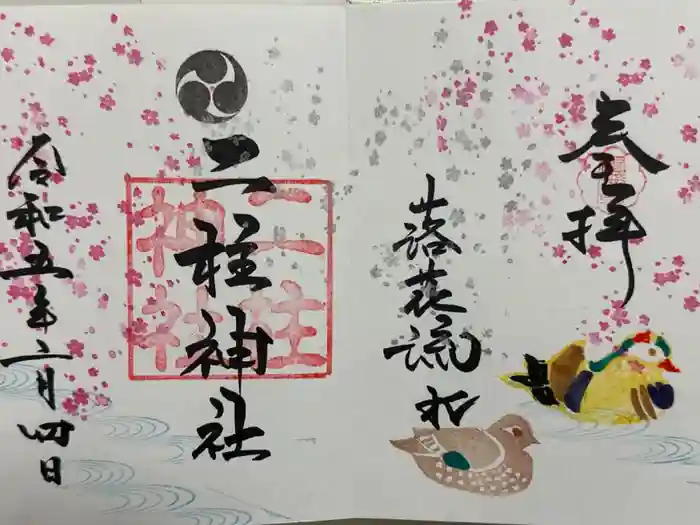 奉拝
落花流水
二柱神社
二柱
神社
令和五年二月四日